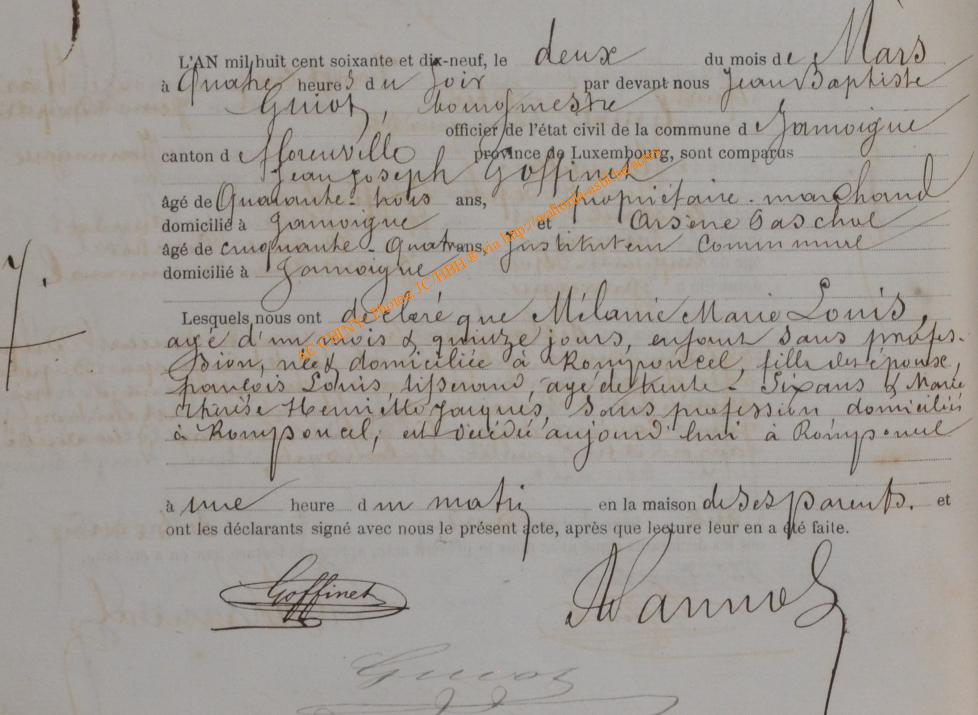 L'AN mil huit cent soixante et dix-neuf, le deux du mois de Mars
à Quatre heures du soir par devant nous Jean Baptiste
Guiot, bourgmestre
officier de l'état civil de la commune d Jamoigne
canton d Florenville province de Luxembourg, sont comparus
Jean Joseph Goffinet
âgé de Quarante-trois ans, propriétaire-marchand
domicilié à Jamoigne et Arsène
âgé de cinquante-Quatre ans, Instituteur Communal
domicilié à Jamoigne
7.
Lesquels nous ont déclaré que Mélanie Marie Louis,
agé d'un mois & quinze jours, enfant sans profes-
sion, née & domiciliée à Romponcel, fille des époux
françois Louis, tisserand, agé de trente-Six ans & Marie
thérèse Henriette Jacques, sans profession domiciliés
à Romponcel, est décédé aujourd'hui à Romponcel
à une heure du matin en la maison de ses parents. et
ont les déclarants signé avec nous le présent acte, après que lecture leur en a été faite.
Goffinet
Guiot
AC CHINY, Photos JC HBH & via http://